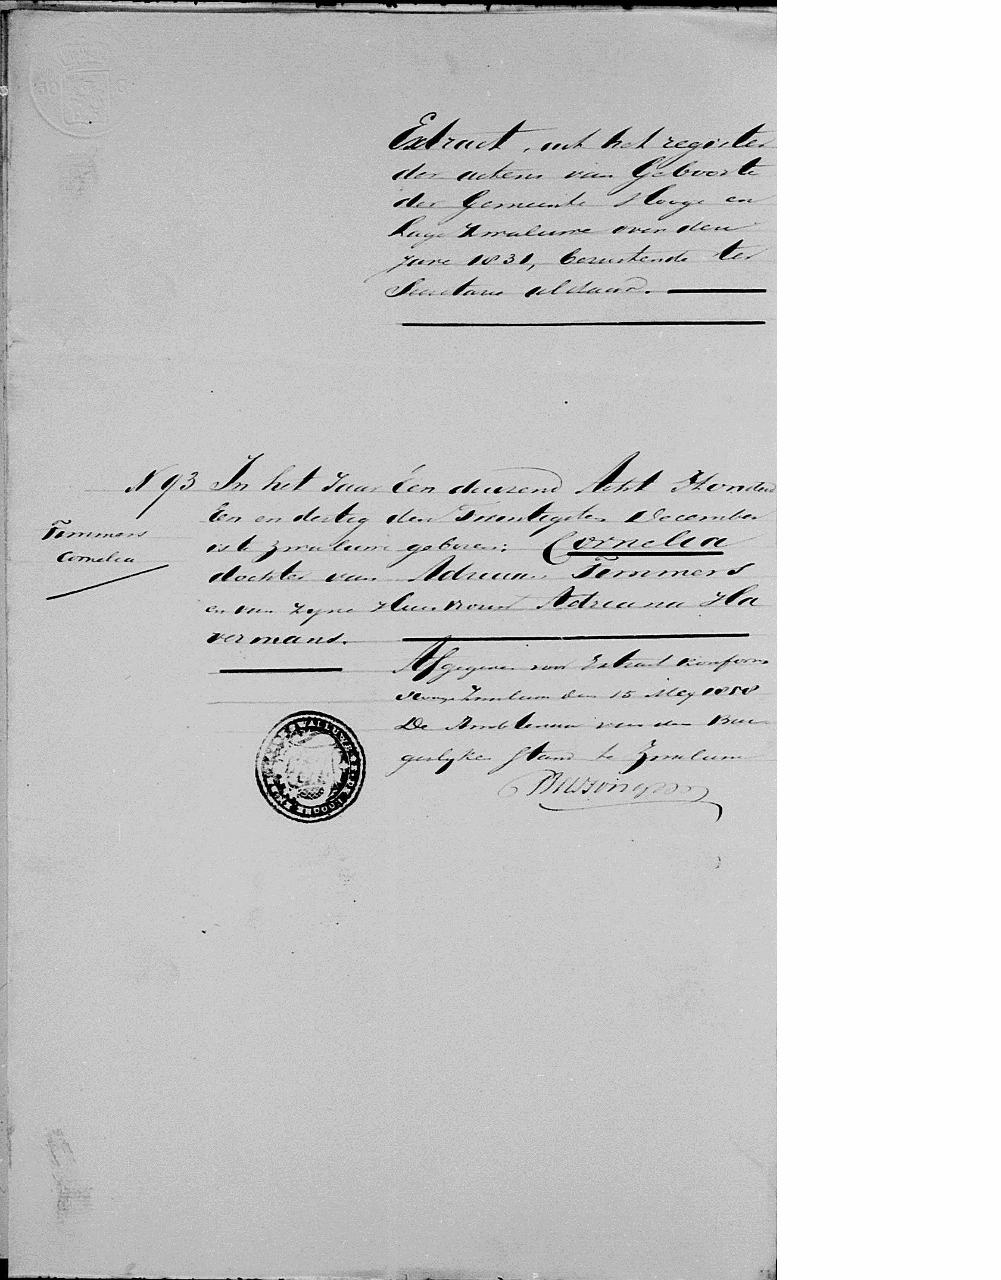 Extract, uit het register
der actens van Geboorte
der Gemeente Hooge en
Lage Zwaluwe over den
Jare 1831, berustende ter
Secretarie aldaar.
N 93 In het Jaar Een duizend Acht Honderd
Een en dertig den Twintigsten December
Timmers
Cornelia
is te Zwaluwe geboren: Cornelia
dochter van Adriaan Timmers
en van zyne Huisvrouw Adriana Ha
vermans.
Afgegeven voor Extract conform
Hooge Zwaluwe den 15 Mey 1858
De Ambtenaar van den Bur
gerlyken Stand te Zwaluwe